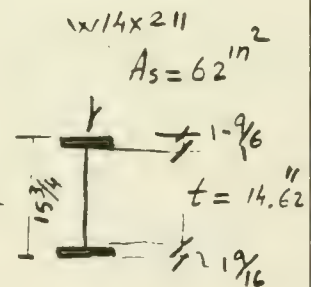 W14x211
As = 62 in²
1-9/6
15 3/4
t = 14.62"
1 9/16